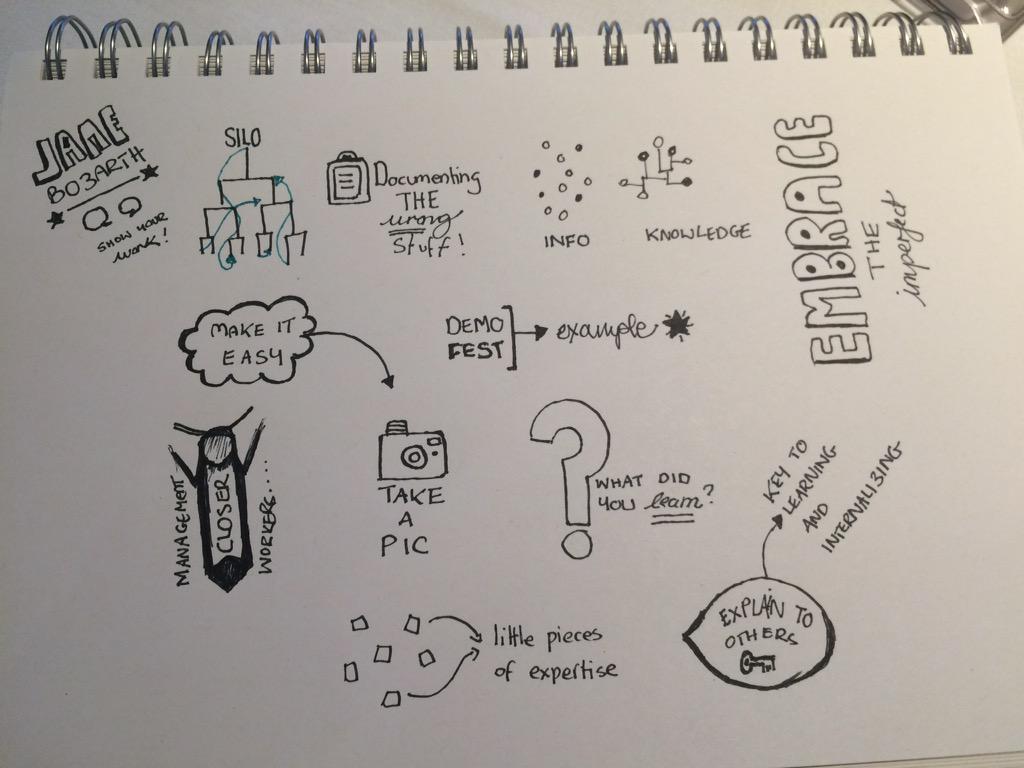 JANE
BOZARTH
SHOW YOUR
work!
SILO
Documenting
THE
wrong
Stuff!
INFO
KNOWLEDGE
EMBRACE
THE
imperfect
MAKE IT
EASY
DEMO
FEST
example
MANAGEMENT
CLOSER
WORKERS....
TAKE
A
PIC
WHAT DID
YOU learn?
KEY TO
LEARNING
AND
INTERNALIZING
EXPLAIN TO
OTHERS
little pieces
of expertise